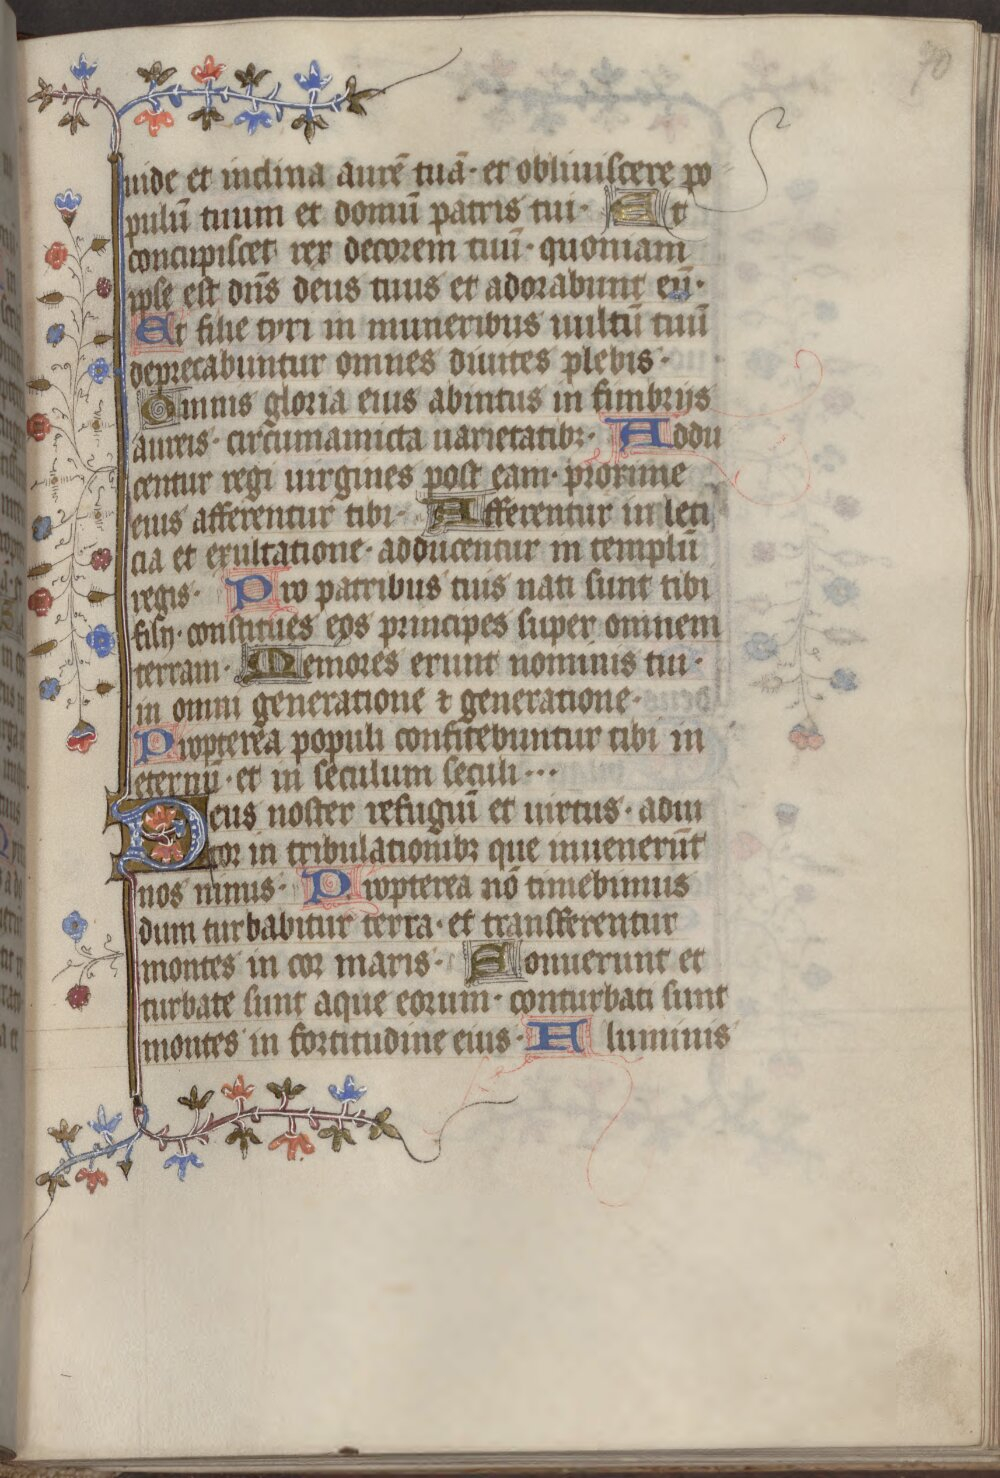 70
uide et inclina aurē tuā· et obliuiscere po
pulū tuum et domū patris tui· Et
concupiscet rex decorem tuū· quoniam
ipse est dn̄s deus tuus et adorabunt eū·
Et filie tyri in muneribus uultū tuū
deprecabuntur omnes diuites plebis·
Omnis gloria eius abintus in fimbrijs
aureis· circumamicta uarietatibꝫ· Addu
centur regi uirgines post eam· proxime
eius afferentur tibi· Afferentur in leti
cia et exultatione· adducentur in templū
regis· Pro patribus tuis nati sunt tibi
filij· constitues eos principes super omnem
terram· Memores erunt nominis tui·
in omni generatione ⁊ generatione·
Propterea populi confitebuntur tibi in
eternū· et in seculum seculi···
Deus noster refugiū et uirtus· adiu
tor in tribulationibꝫ que inuenerūt
nos nimis· Propterea nō timebimus
dum turbabitur terra· et transferentur
montes in cor maris· Sonuerunt et
turbate sunt aque eorum· conturbati sunt
montes in fortitudine eius· A luminis